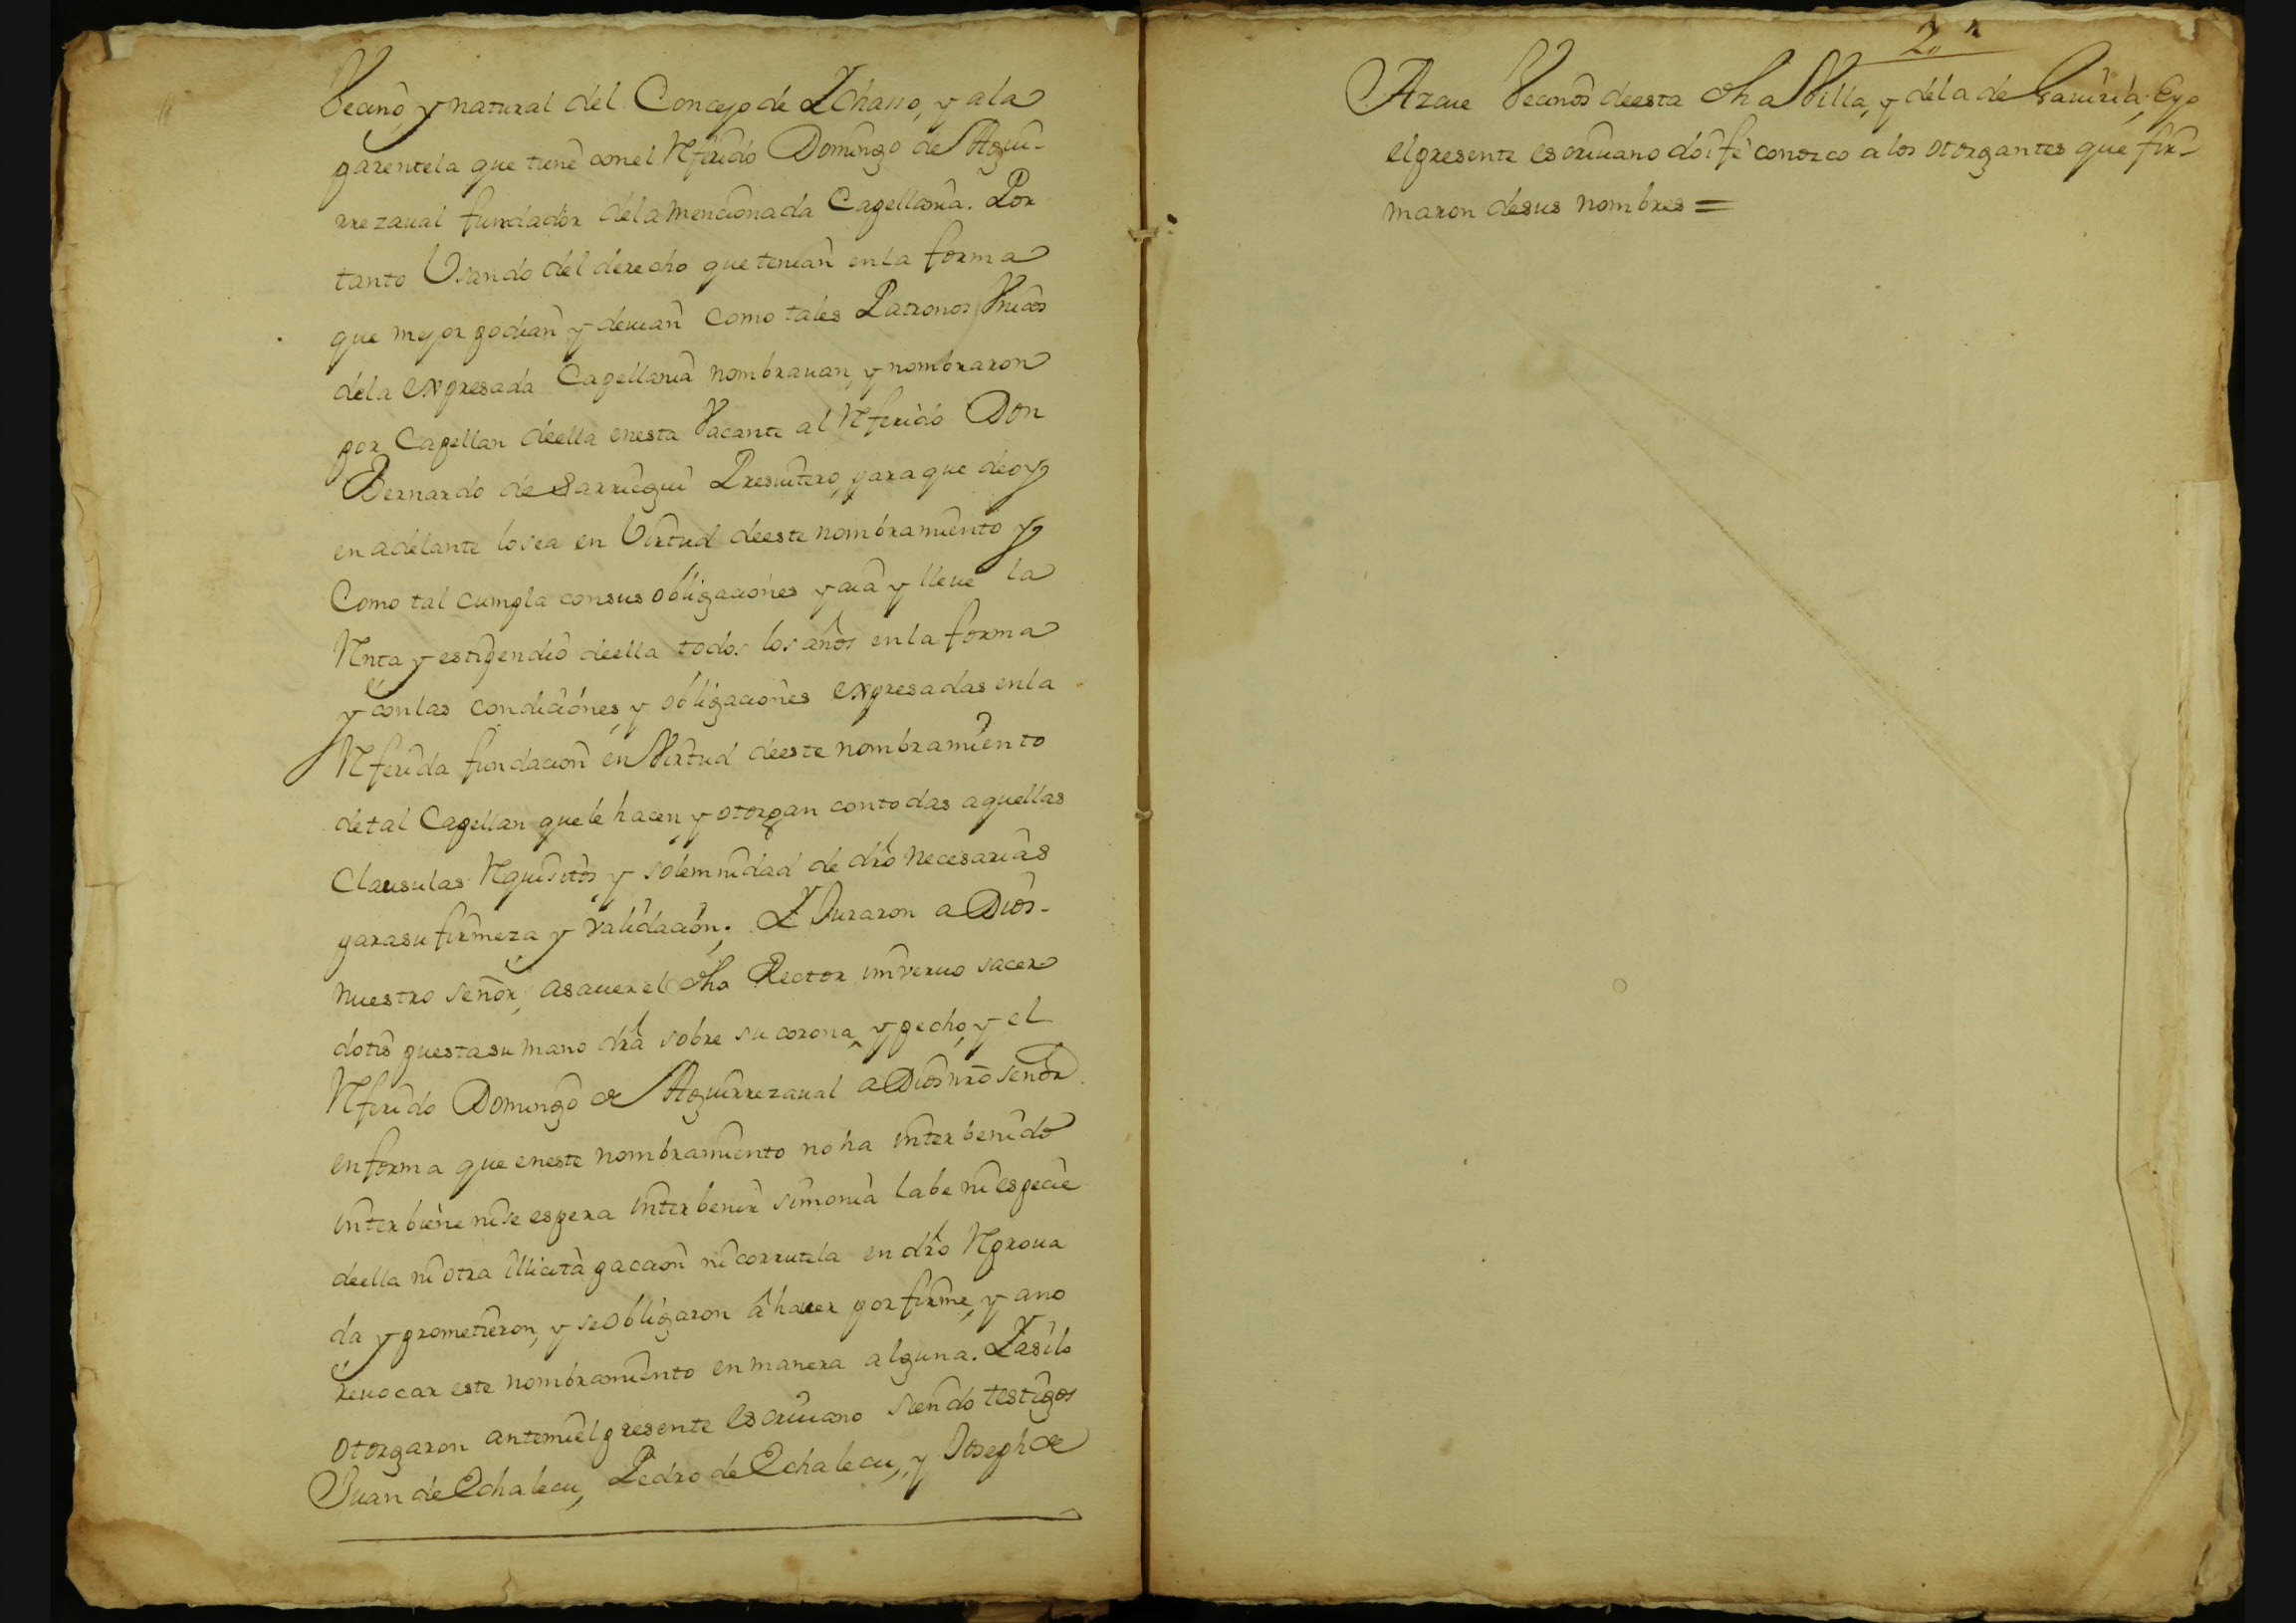 Vecino y natural del Concejo de Ychasso, y ala
parentela que tiene conel Referido Domingo de Agui-
rrezaual fundador dela mencionada Capellania. Por
tanto Usando del derecho que tenian enla forma
que mejor podian y deuian como tales Patronos Unicos
dela expresada Capellania nombrauan, y nombraron
por Capellan deella enesta Vacante al Referido Don
Bernardo de Sarriegui Presuitero, para que deoy
en adelante losea en Virtud deeste nombramiento y
Como tal cumpla consus obligaciones y aia y lleue la
Renta y estipendio deella todos los años enla forma
y conlas condiciones, y obligaciones expresadas enla
Referida fundacion en Virtud deeste nombramiento
detal Capellan quele hacen, y otorgan contodas aquellas
Clausulas Requisitos, y solemnidad de dro necesarias
parasu firmeza y validacion; Y Juraron a Dios-
nuestro señor, asauer el dho Rector in veruo sacer-
dotis puestasu mano dra sobre su corona, y pecho, y el
Referido Domingo de Aguirrezaual a Dios nro señor
enforma que eneste nombramiento no ha interbenido
interbiene nise espera interbenir simonia labe ni especie
deella ni otra illicita paccion ni corrutela en dro Reproua
da y prometieron, y seobligaron â hauer por firme, y ano
reuocar este nombramiento en manera alguna. Yasilo
otorgaron antemi el presente escriuano siendo testigos
Juan de Echalecu, Pedro de Echalecu, y Joseph de
2
Azcue Vecinos deesta dha Villa, y dela de Gauiria, Eyo
elpresente escriuano doi fe conozco a los otorgantes que fir-
maron desus nombres =